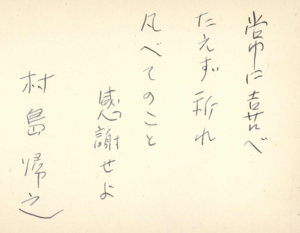 常に喜べ
たえず祈れ
凡べてのこと
感謝せよ
村島帰之